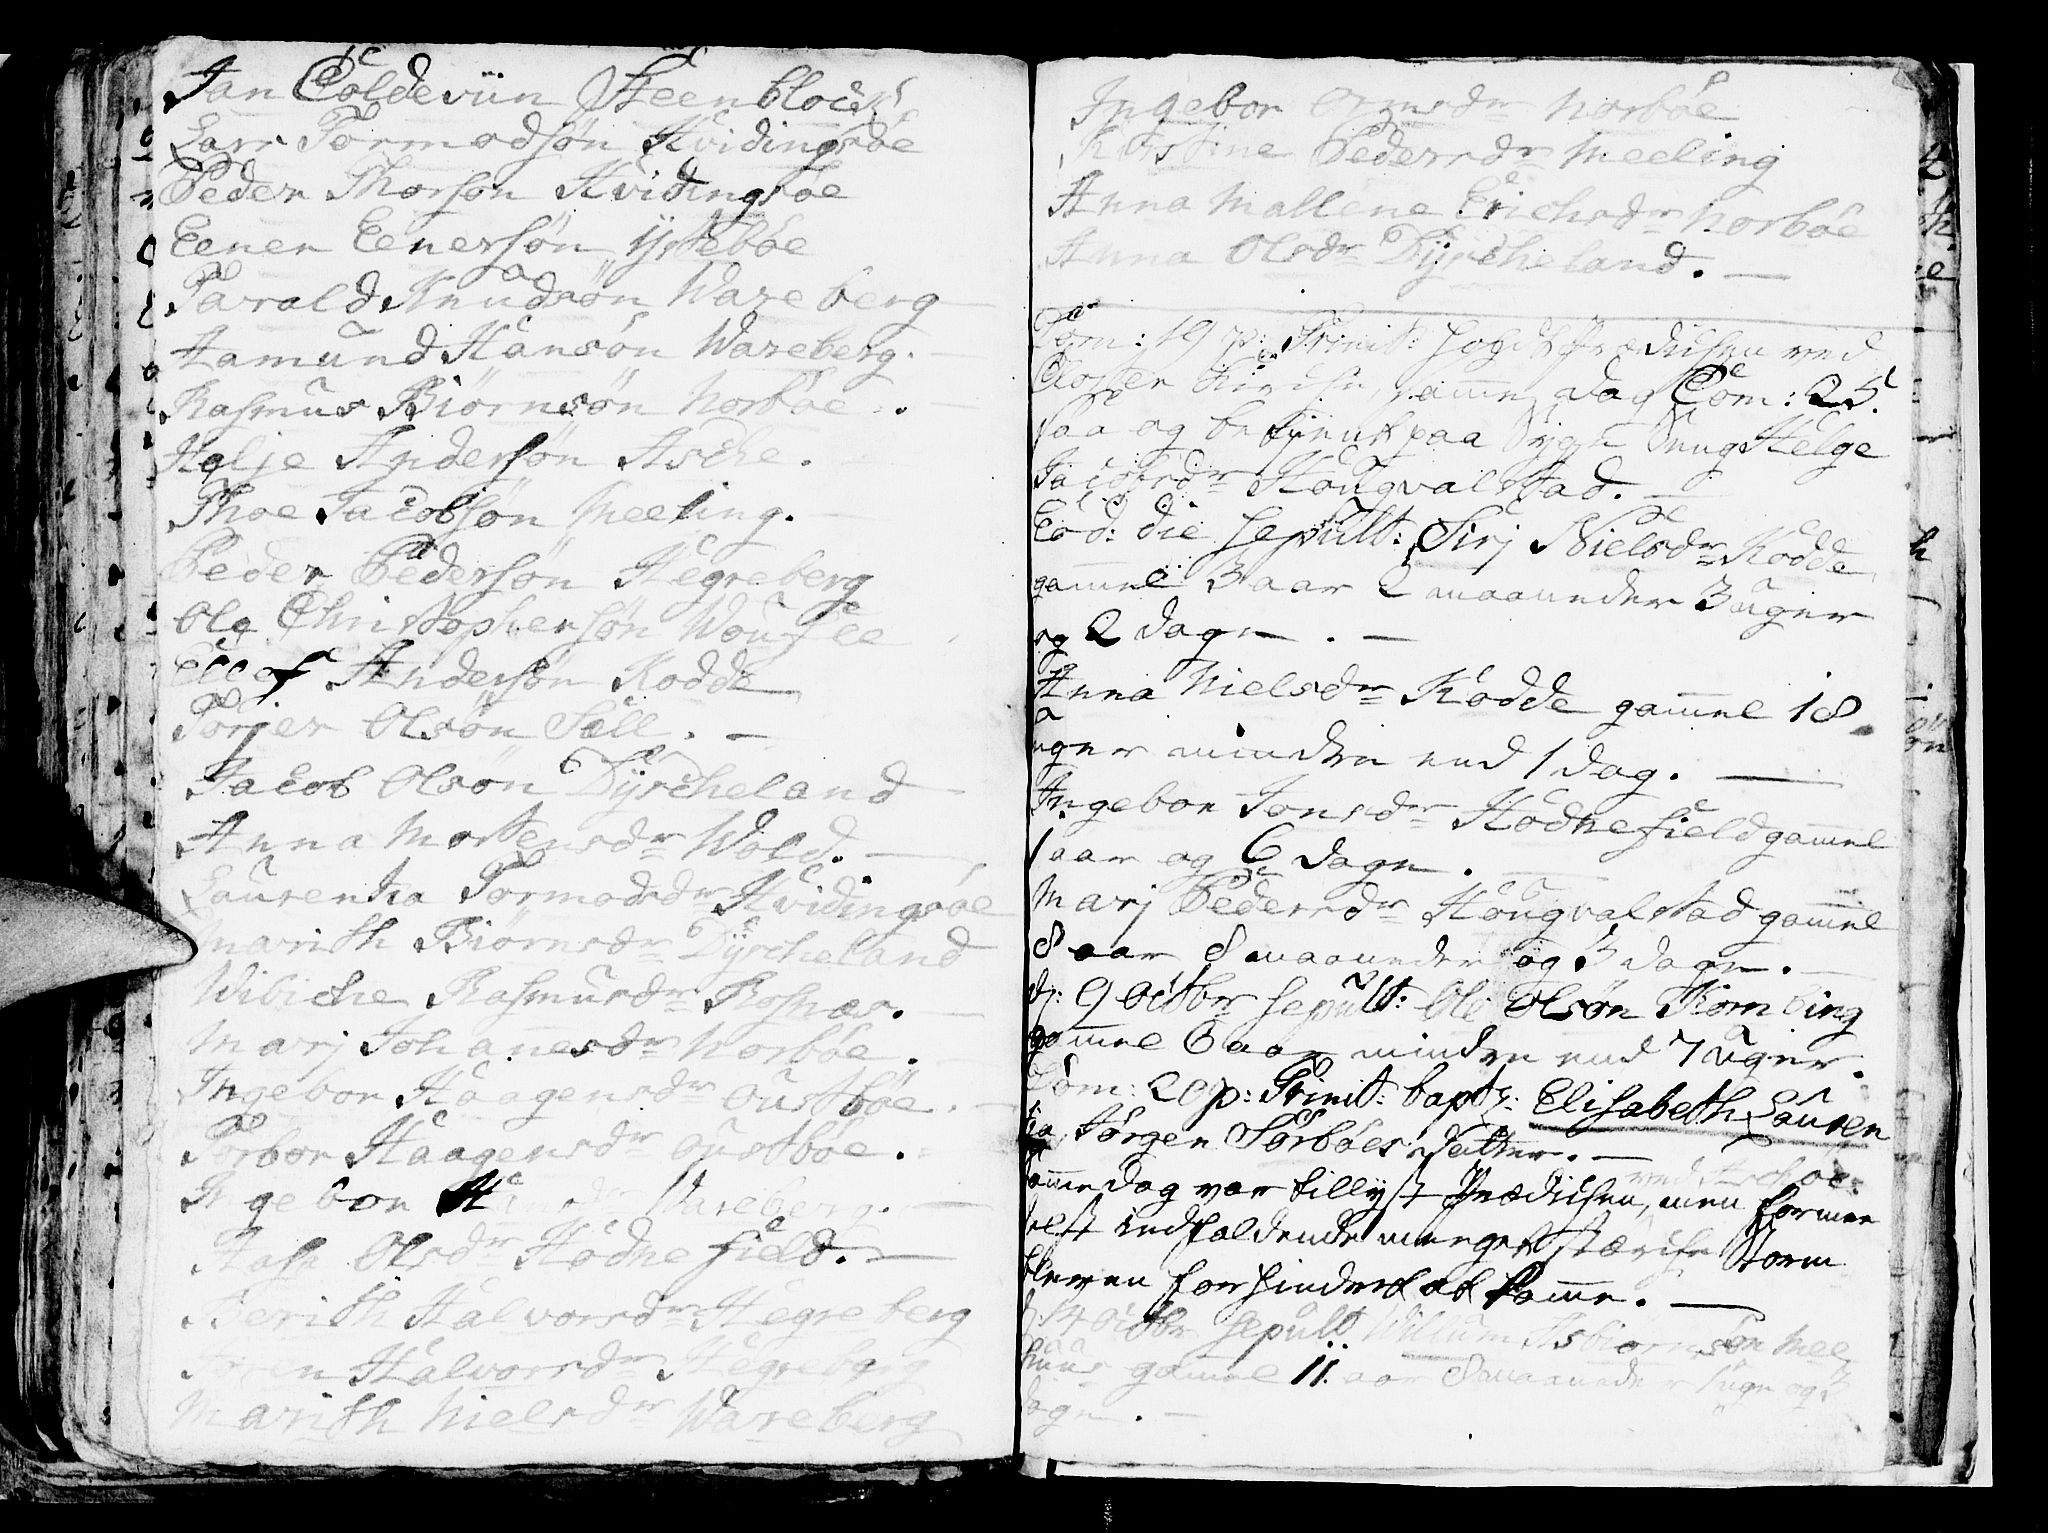 Jan Coldeviin Steenblock
Lars Tormodsøn Hvidingsøe
Peder Thorsøn Hvidingsøe
Eener Eenersøn ÿstebøe
Tarald Knudsøn Wareberg
Aamund Hansøn Wareberg.
Rasmus Biørnsøn Norbøe.
Helje Andersøn Asche.
Thoe Jacobsøn Meeling.
Peder Pedersøn Hegreberg
Ole Christophersøn
Ellef Andersøn Kodde
Torjer Olsøn Sell. —
Jacob Olsøn Dÿrcheland
Anna Mortensdr Wold. —
Laurentia Tormodsdr Hvidingsøe
Marith Biørnsdr Dÿrcheland
Wibiche Rasmusdr Rosnæs.
Marj Johanesdr Norbøe.
Ingebor Haagensdr oustbøe.
Torbor Haagensdr oustbøe.
Ingebor Wareberg. —
Aase Olsdr Hodnefield. —
Berith Halvorsdr Hegreberg
Halvorsdr Hegreberg
Marith Nielsdr Wareberg
Ingebor Ormsdr Norbøe
Kirstine Pedersdr Meeling
Anna Mallene Erichsdr Norbøe
Anna Olsdr Dÿrcheland. —
Dom: 19 p: Trinit: holdt Prædichen ved
Closter Kirche, samme dag Com: 25.
saa og betient paa Sÿge Seng Helge
Jacobsdr Hougvalstad. —
Eod: die sepult: Sirj Nielsdr Kodde
gamel 3 aar 2 maaneder 3 uger
og 2 dage. —
Anna Nielsdr Kodde gamel 18
uger mindre end 1 dag. —
Ingebor Jonsdr Hodnefield gamel
1 aar og 6 dage.
Marj Pedersdr Hougvalstad gamel
8 aar 8 maaneder og 3 dage. —
d: 9 octbr sepult: Ole Olsøn
gamel 6 aar mindre end 7 uger.
Dom: 20 p: Trinit: baptz: Elisabeth Lauren
tia, Jørgen Sørbøes datter. —
samme dag var tillyst Prædichen, men for me
delst indfaldende meeget stærche Storm
bleven forhindret at komme. —
d: 14 octbr sepult Willum Asbiørnsøn Mee
gamel 11. aar 8 maaneder 1 uge og 3
dage. —